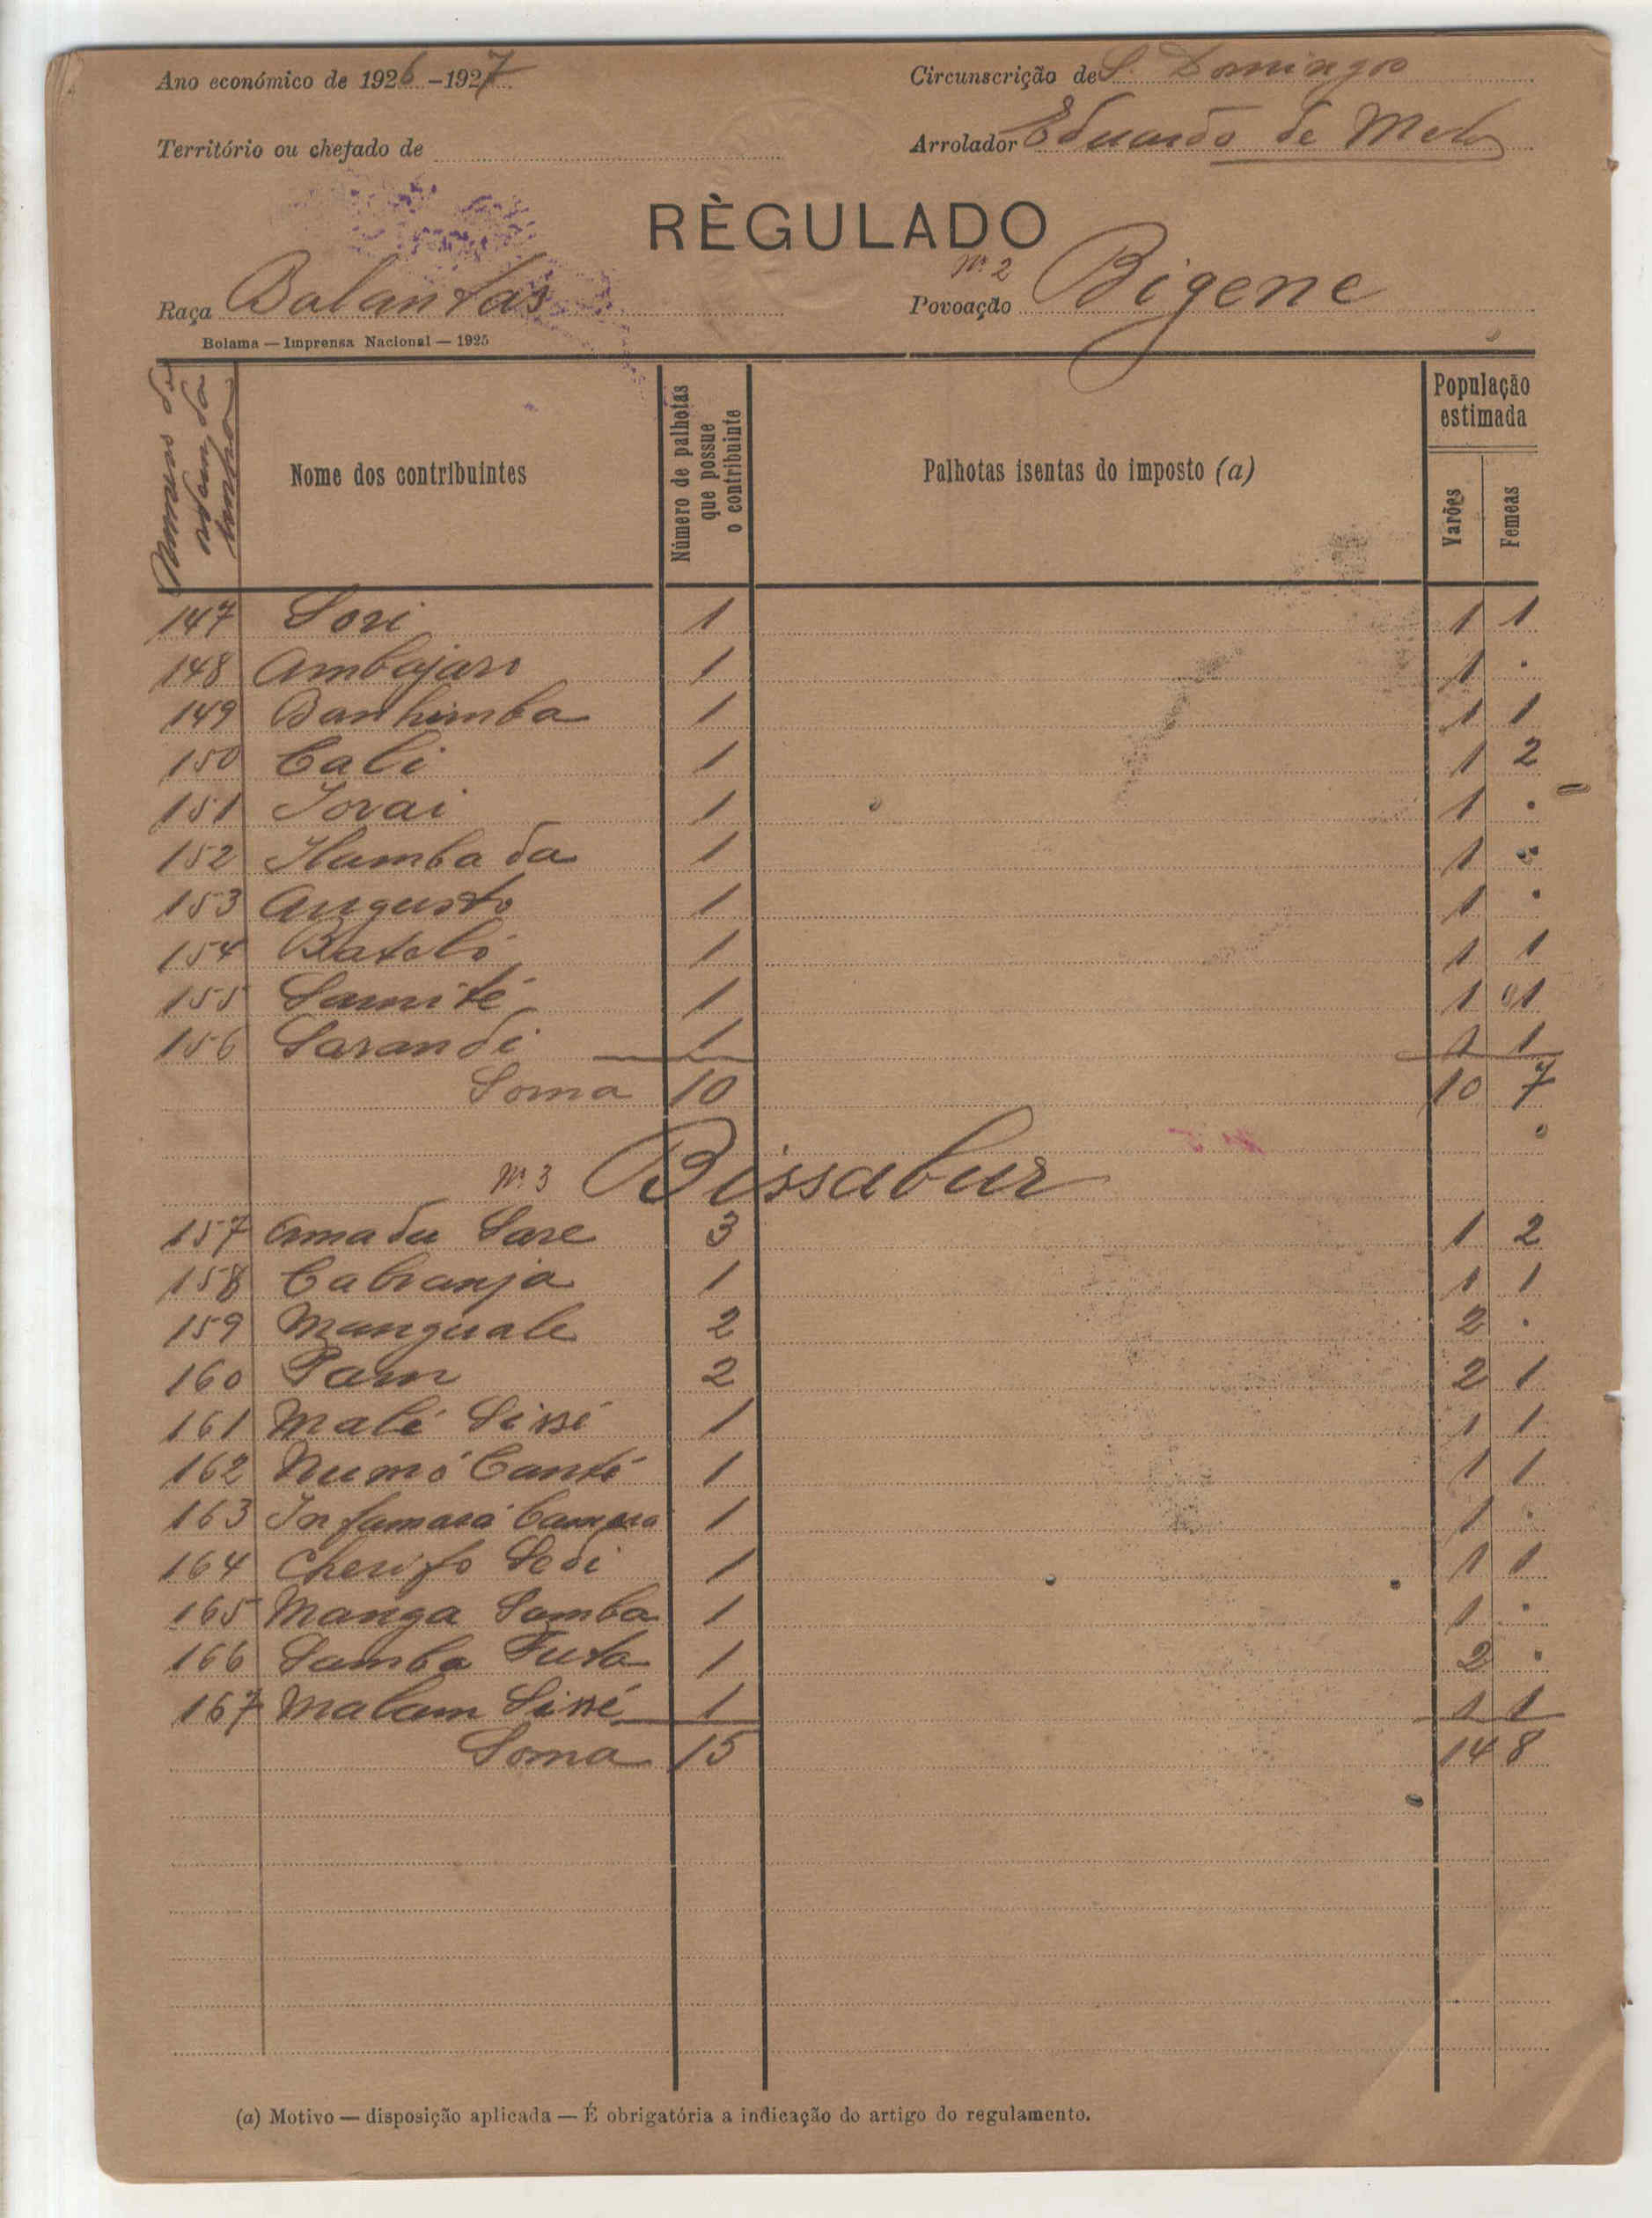 Ano económico de 1926-1927
Circunscrição de S. Domingos
Território ou chefado de
Arrolador Eduardo de Melo
RÈGULADO
Nº 2
Raça Balantas
Povoação Bigene
Bolama — Imprensa Nacional — 1925
Numeros de ordem da
Nome dos contribuintes
Número de palhotas que possue o contribuinte
Palhotas isentas do imposto (a)
População estimada
Varões
Femeas
147 Sori 1 1 1
148 Ambajaro 1 1 .
149 Banhimba 1 1 1
150 Cali 1 1 2
151 Jovai 1 1 .
152 Hamba da 1 1 .
153 Augusto 1 1 .
154 Batoló 1 1 1
155 Samité 1 1 1
156 Sarandi 1 1 1
Soma 10 10 7
Nº 3 Bissabur
157 Amadu Sare 3 1 2
158 Cabranja 1 1 1
159 Manguale 2 2 .
160 Pam 2 2 1
161 Malé Sissé 1 1 1
162 Numó Canté 1 1 1
163 Infamará Camara 1 1 .
164 Cherifo Sedi 1 1 1
165 Manga Samba 1 1 .
166 Samba Futa 1 2 .
167 Malam Sissé 1 1 1
Soma 15 14 8
(a) Motivo — disposição aplicada — É obrigatória a indicação do artigo do regulamento.